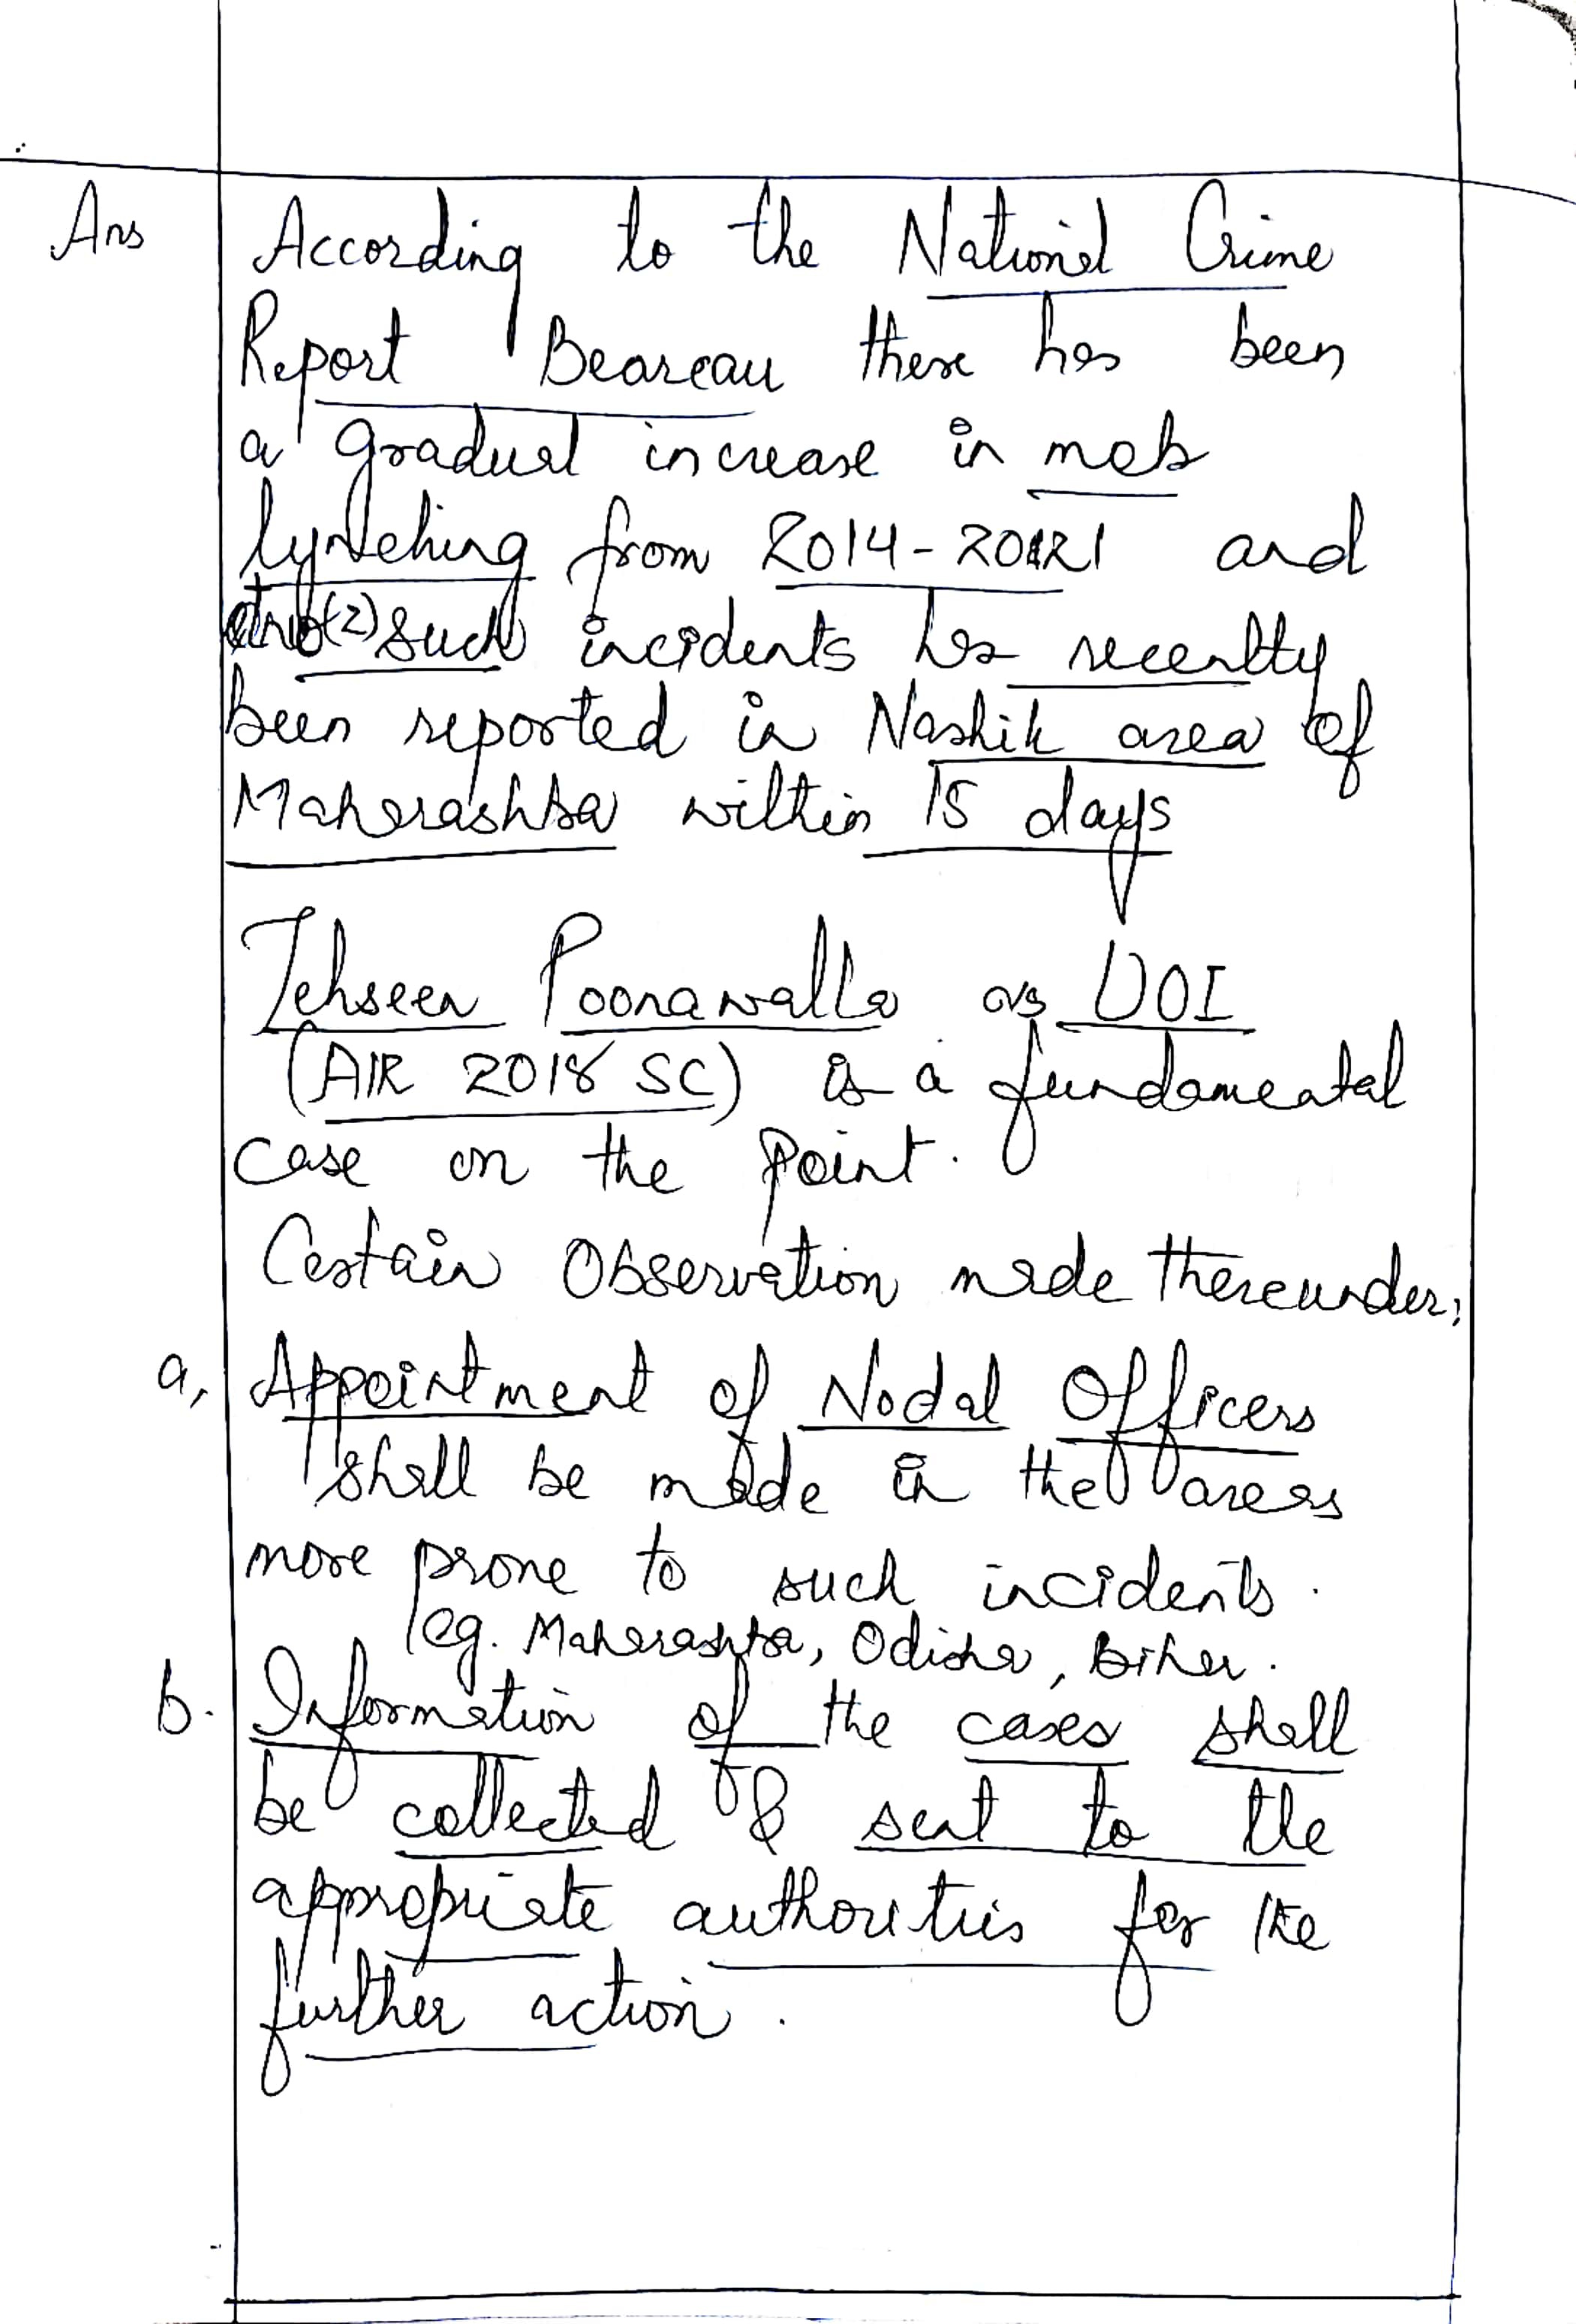 Ans According to the National Crime
Report Beareau there has been
a gradual increase in mob
lynching from 2014-2021 and
two(2) such incidents has recently
been reported in Nashik area of
Maharashtra within 15 days
Tehseen Poonawalla vs UOI
(AIR 2018 SC) is a fundamental
case on the point.
Certain Observation made thereunder;
a, Appointment of Nodal Officers
shall be made in the areas
more prone to such incidents.
eg. Maharashtra, Odisha, Bihar.
b. Information of the cases shall
be collected & sent to the
appropriate authorities for the
further action.